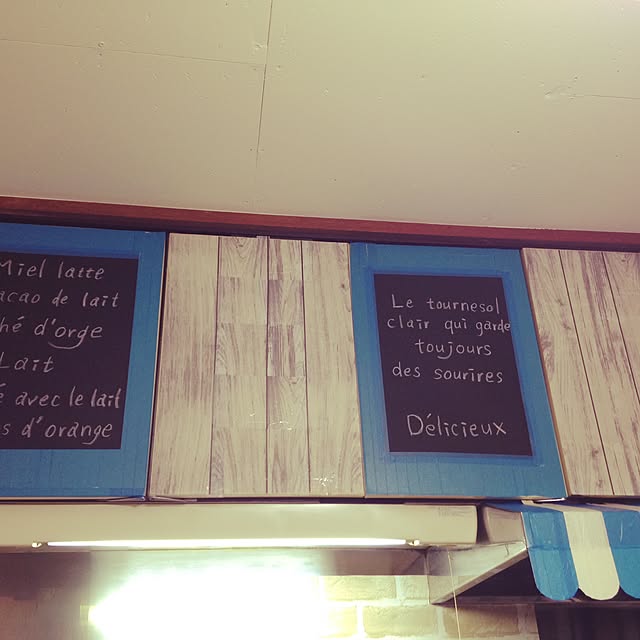 Miel latte
cacao de lait
thé d'orge
Lait
avec le lait
d'orange
Le tournesol
clair qui garde
toujours
des sourires
Délicieux